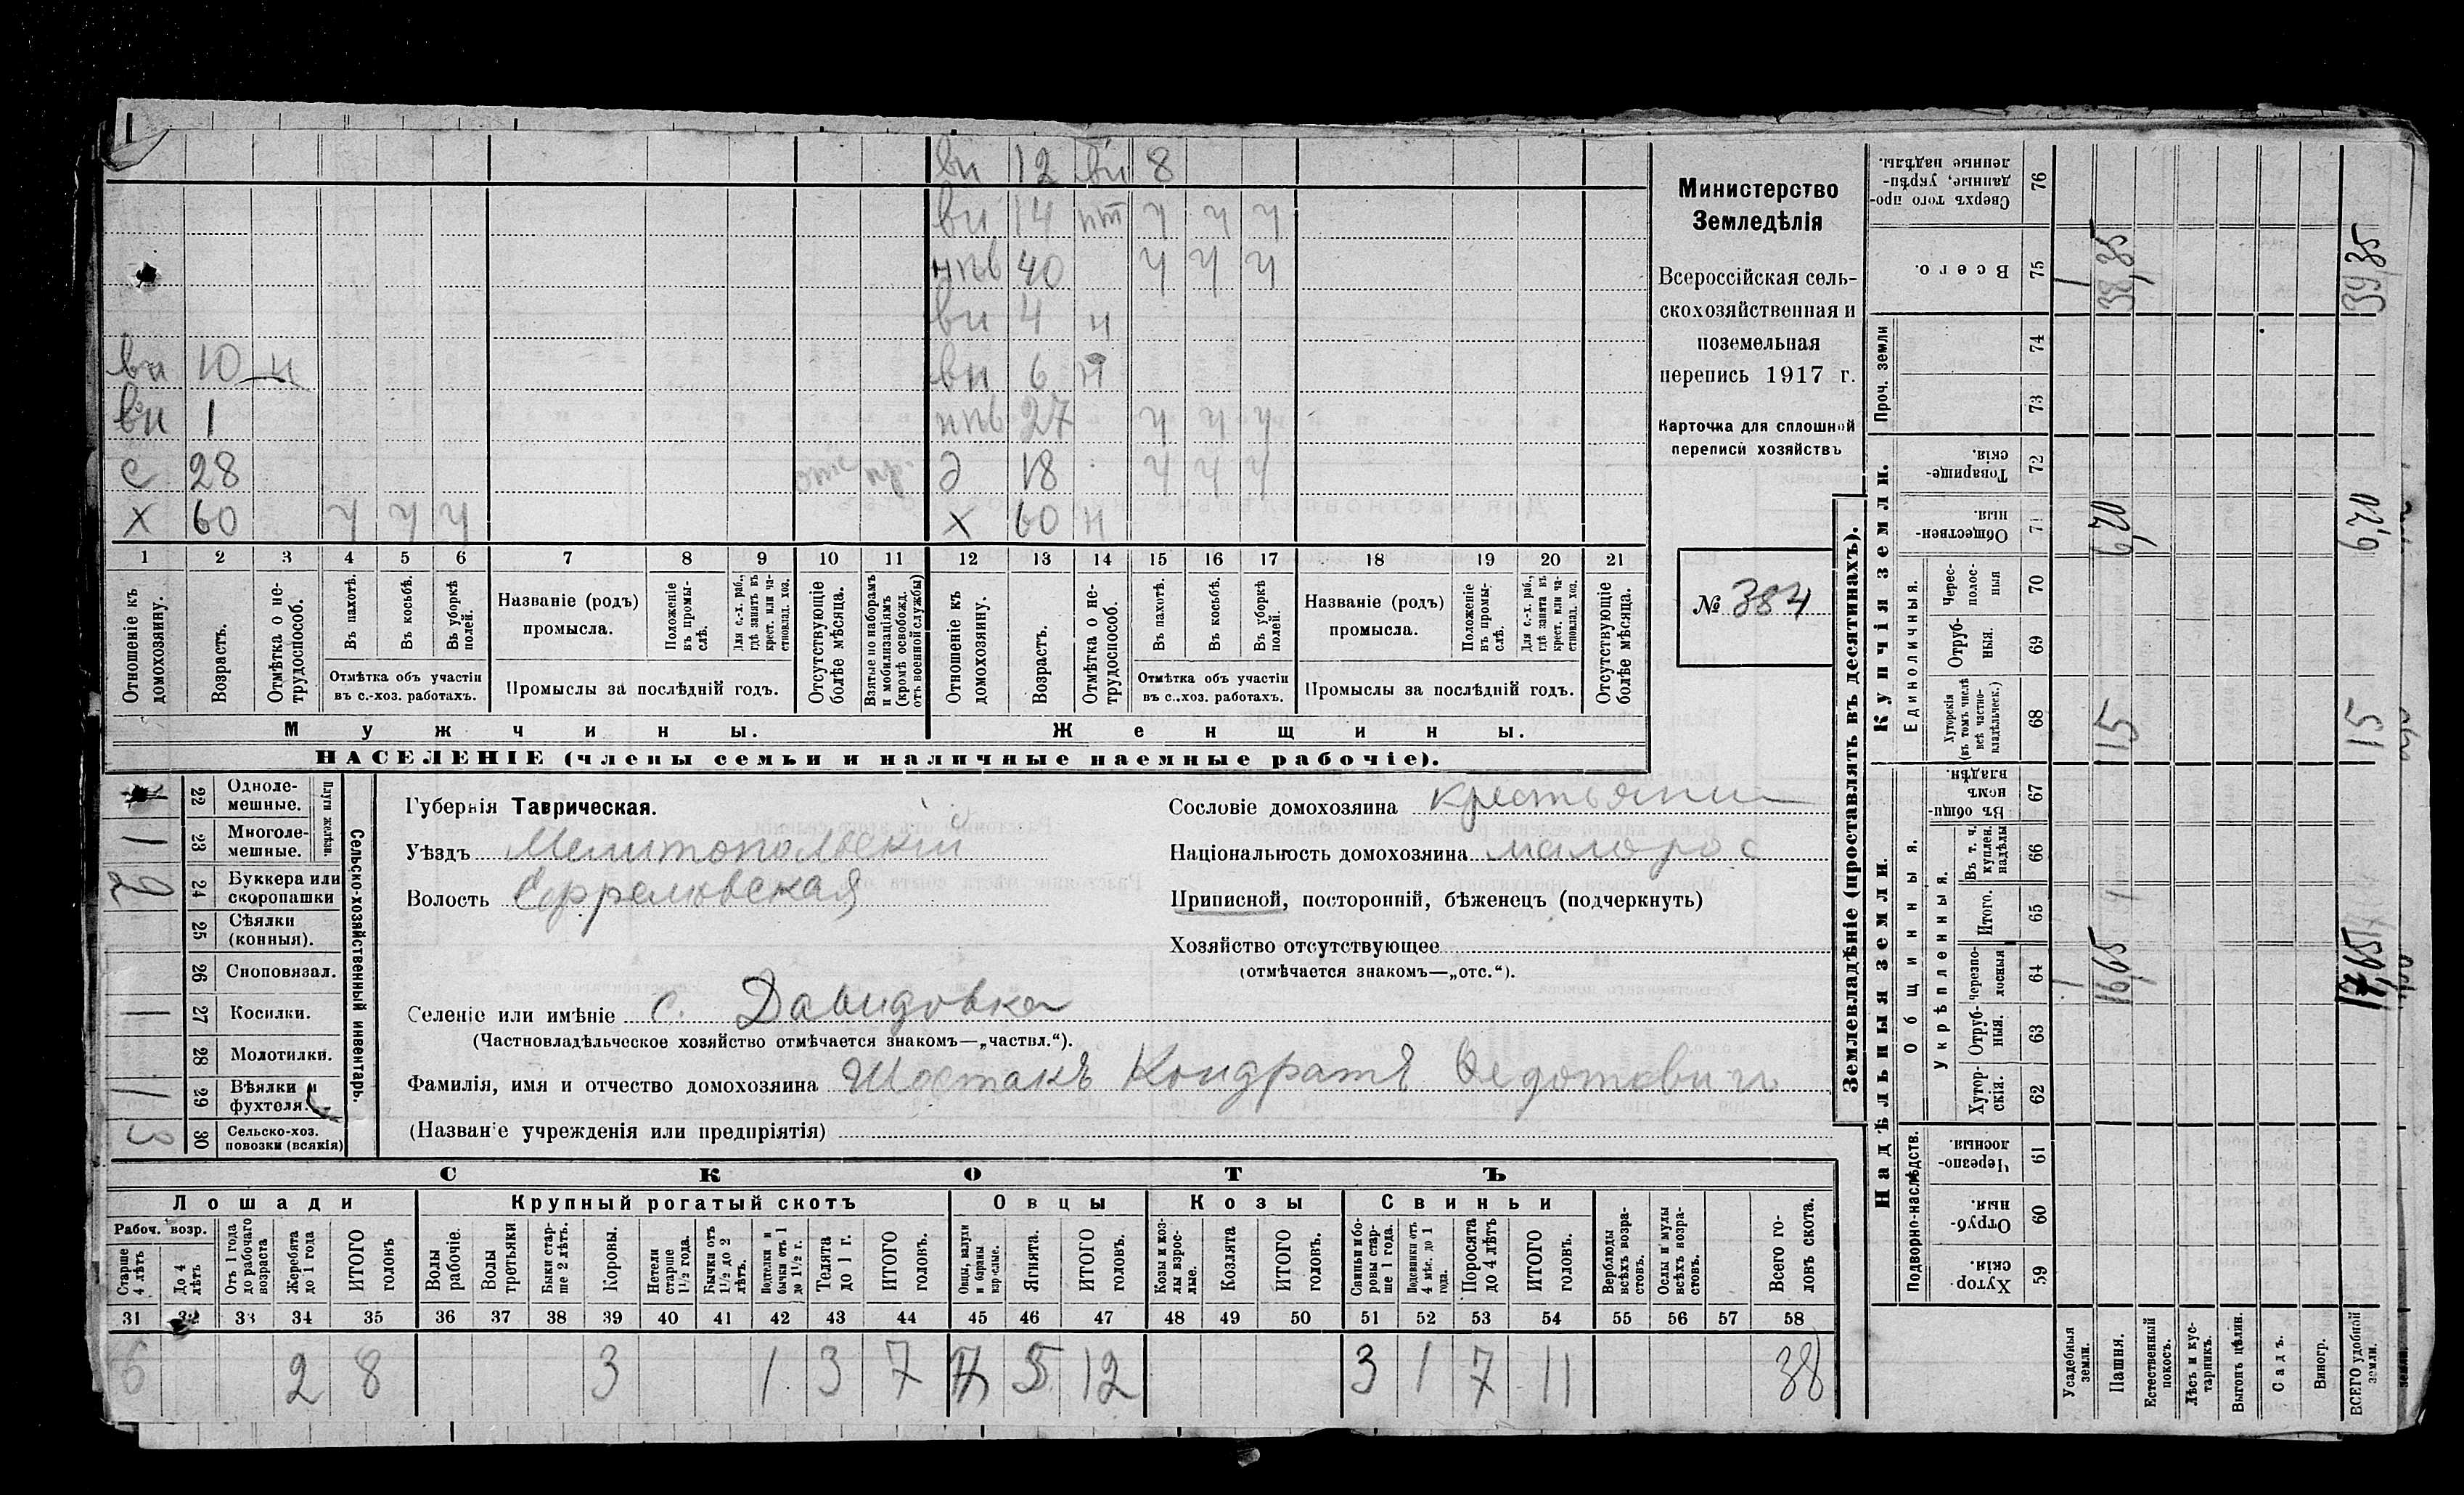 вн 12 вн 8
вн 14 нт ч ч ч
нпв 40 ч ч ч
вн 4 н
вн 10 н вн 6 н
вн 1 нпв 27 ч ч ч
с 28 д 18 ч ч ч
х 60 ч ч ч х 60 н
1 2 3 4 5 6 7 8 9 10 11 12 13 14 15 16 17 18 19 20 21
Отношеніе къ домохозяину.
Возрастъ.
Отмѣтка о не-
трудоспособ.
Въ пахотѣ.
Въ косьбѣ.
Въ уборкѣ
полей.
Отмѣтка объ участіи
въ с.-хоз. работахъ.
Названіе (родъ)
промысла.
Положеніе
въ промы-
слѣ.
Для с.-х. раб.,
гдѣ занятъ въ
крест. или ча-
стновлад. хоз.
Промыслы за послѣдній годъ.
Отсутствующіе
болѣе мѣсяца.
Взятые по наборамъ
и мобилизаціямъ
(кромѣ освобожд.
отъ военной службы)
Отношеніе къ
домохозяину.
Возрастъ.
Отмѣтка о не-
трудоспособ.
Въ пахотѣ.
Въ косьбѣ.
Въ уборкѣ
полей.
Отмѣтка объ участіи
въ с.-хоз. работахъ.
Названіе (родъ)
промысла.
Положеніе
въ промы-
слѣ.
Для с.-х. раб.,
гдѣ занята въ
крест. или ча-
стновлад. хоз.
Промыслы за послѣдній годъ.
Отсутствующіе
болѣе мѣсяца.
Мужчины. Женщины.
НАСЕЛЕНІЕ (члены семьи и наличные наемные рабочіе).
Министерство
Земледѣлія
Всероссійская сель-
скохозяйственная и
поземельная
перепись 1917 г.
Карточка для сплошной
переписи хозяйствъ
№ 384
Сельско-хозяйственный инвентарь.
Плуги желѣзн.
22 Одноле-
мешные.
1 23 Многоле-
мешные.
2 24 Буккера или
скоропашки
25 Сѣялки
(конныя).
26 Сноповязал.
1 27 Косилки.
28 Молотилки.
1 29 Вѣялки и
фухтеля.
3 30 Сельско-хоз.
повозки (всякія)
Губернія Таврическая.
Уѣздъ Мелитопольскій
Волость Ефремовская
Сословіе домохозяина крестьянин
Національность домохозяина малорос
Приписной, посторонній, бѣженецъ (подчеркнуть)
Хозяйство отсутствующее
(отмѣчается знакомъ—„отс.“).
Селеніе или имѣніе с. Давидовка
(Частновладѣльческое хозяйство отмѣчается знакомъ—„частвл.“).
Фамилія, имя и отчество домохозяина Шостакъ Кондратъ Федотович
(Названіе учрежденія или предпріятія)
СКОТЪ
Лошади Крупный рогатый скотъ Овцы Козы Свиньи
Рабоч. возр.
Старше
4 лѣтъ
До 4
лѣтъ
Отъ 1 года
до рабочаго
возраста
Жеребята
до 1 года
ИТОГО
головъ
Волы
рабочіе.
Волы
третьяки
Быки стар-
ше 2 лѣтъ.
Коровы.
Нетели
старше
1½ года.
Бычки отъ
1½ до 2
лѣтъ.
Подтелки и
бычки отъ 1
до 1½ г.
Телята
до 1 г.
ИТОГО
головъ.
Овцы, валухи
и бараны
взрослые.
Ягнята.
ИТОГО
головъ.
Козы и коз-
лы взрос-
лые.
Козлята
ИТОГО
головъ.
Свиньи и бо-
ровы стар-
ше 1 года.
Подсвинки отъ
4 мѣс. до 1
года.
Поросята
до 4 лѣтъ
ИТОГО
головъ.
Верблюды
всѣхъ возра-
стовъ.
Ослы и мулы
всѣхъ возра-
стовъ.
Всего го-
ловъ скота.
31 32 33 34 35 36 37 38 39 40 41 42 43 44 45 46 47 48 49 50 51 52 53 54 55 56 57 58
6 2 8 3 1 3 7 7 5 12 3 1 7 11 38
Землевладѣніе (проставлять въ десятинахъ).
Надѣльныя земли. Купчія земли. Проч. земли
Подворно-наслѣдств. Общинныя. Укрѣпленныя. Единоличныя.
Хутор-
скія. 59
Отруб-
ныя. 60
Черезпо-
лосныя. 61
Хутор-
скія. 62
Отруб-
ныя. 63
Черезпо-
лосныя 64
Итого. 65
Въ т. ч.
куплен.
надѣлы 66
Въ общи
номъ
владѣн. 67
Хуторскія
(въ томъ числѣ
всѣ частно-
владѣльческ.) 68
Отруб-
ныя. 69
Черес-
полос-
ныя 70
Обществен-
ныя. 71
Товарище-
скія. 72
73
74
Всего. 75
Сверхъ того про-
данные, укрѣп-
ленные надѣлы. 76
Усадебныя
земли. 1 1
Пашня. 16,65 15 6,20 38,35
Естественный
покосъ.
Лѣсъ и кус-
тарникъ.
Выгонъ цѣлин.
Садъ.
Виногр.
ВСЕГО удобной
земли. 15 6,20 39,35